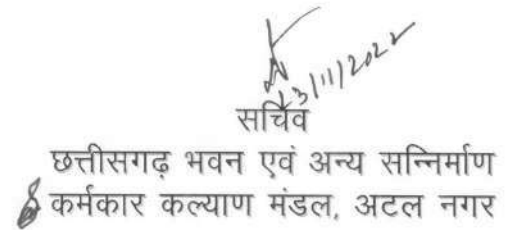 3/11/2022
सचिव
छत्तीसगढ़ भवन एवं अन्य सन्निर्माण
कर्मकार कल्याण मंडल, अटल नगर